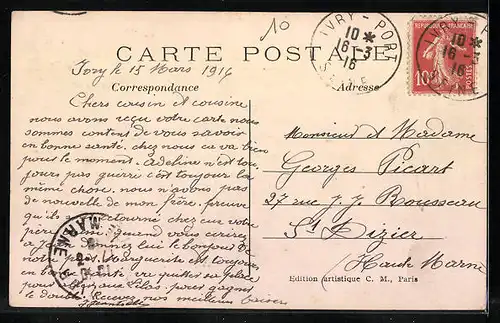 10
CARTE POSTALE
IVRY-PORT
10 *
16-3
16
SEINE
REPUBLIQUE FRANÇAISE
10c
POSTES
IVRY-P
10 *
16-3
16
SEINE
Ivry le 15 Mars 1916
Correspondance
Adresse
Chers cousin et cousine
nous avons reçu votre carte nous
sommes content de vous savoir
en bonne santé, chez nous ca va bien
pour le moment. Adeline n'est tou
jours pas guerri c'est toujours la
même chose, nous n'avons pas
de nouvelle de mon frère,
qu'il retourné chez un votre
quand vous ecrirer
le bonjour
Marguerite est toujours
en bonne santé,
pas gagner
le double. Recevez nos meilleurs baisers
MARNE
Monsieur et Madame
Georges Picart
27 rue J. J. Rousseau
St Dizier
(Haute Marne)
Edition artistique C. M., Paris